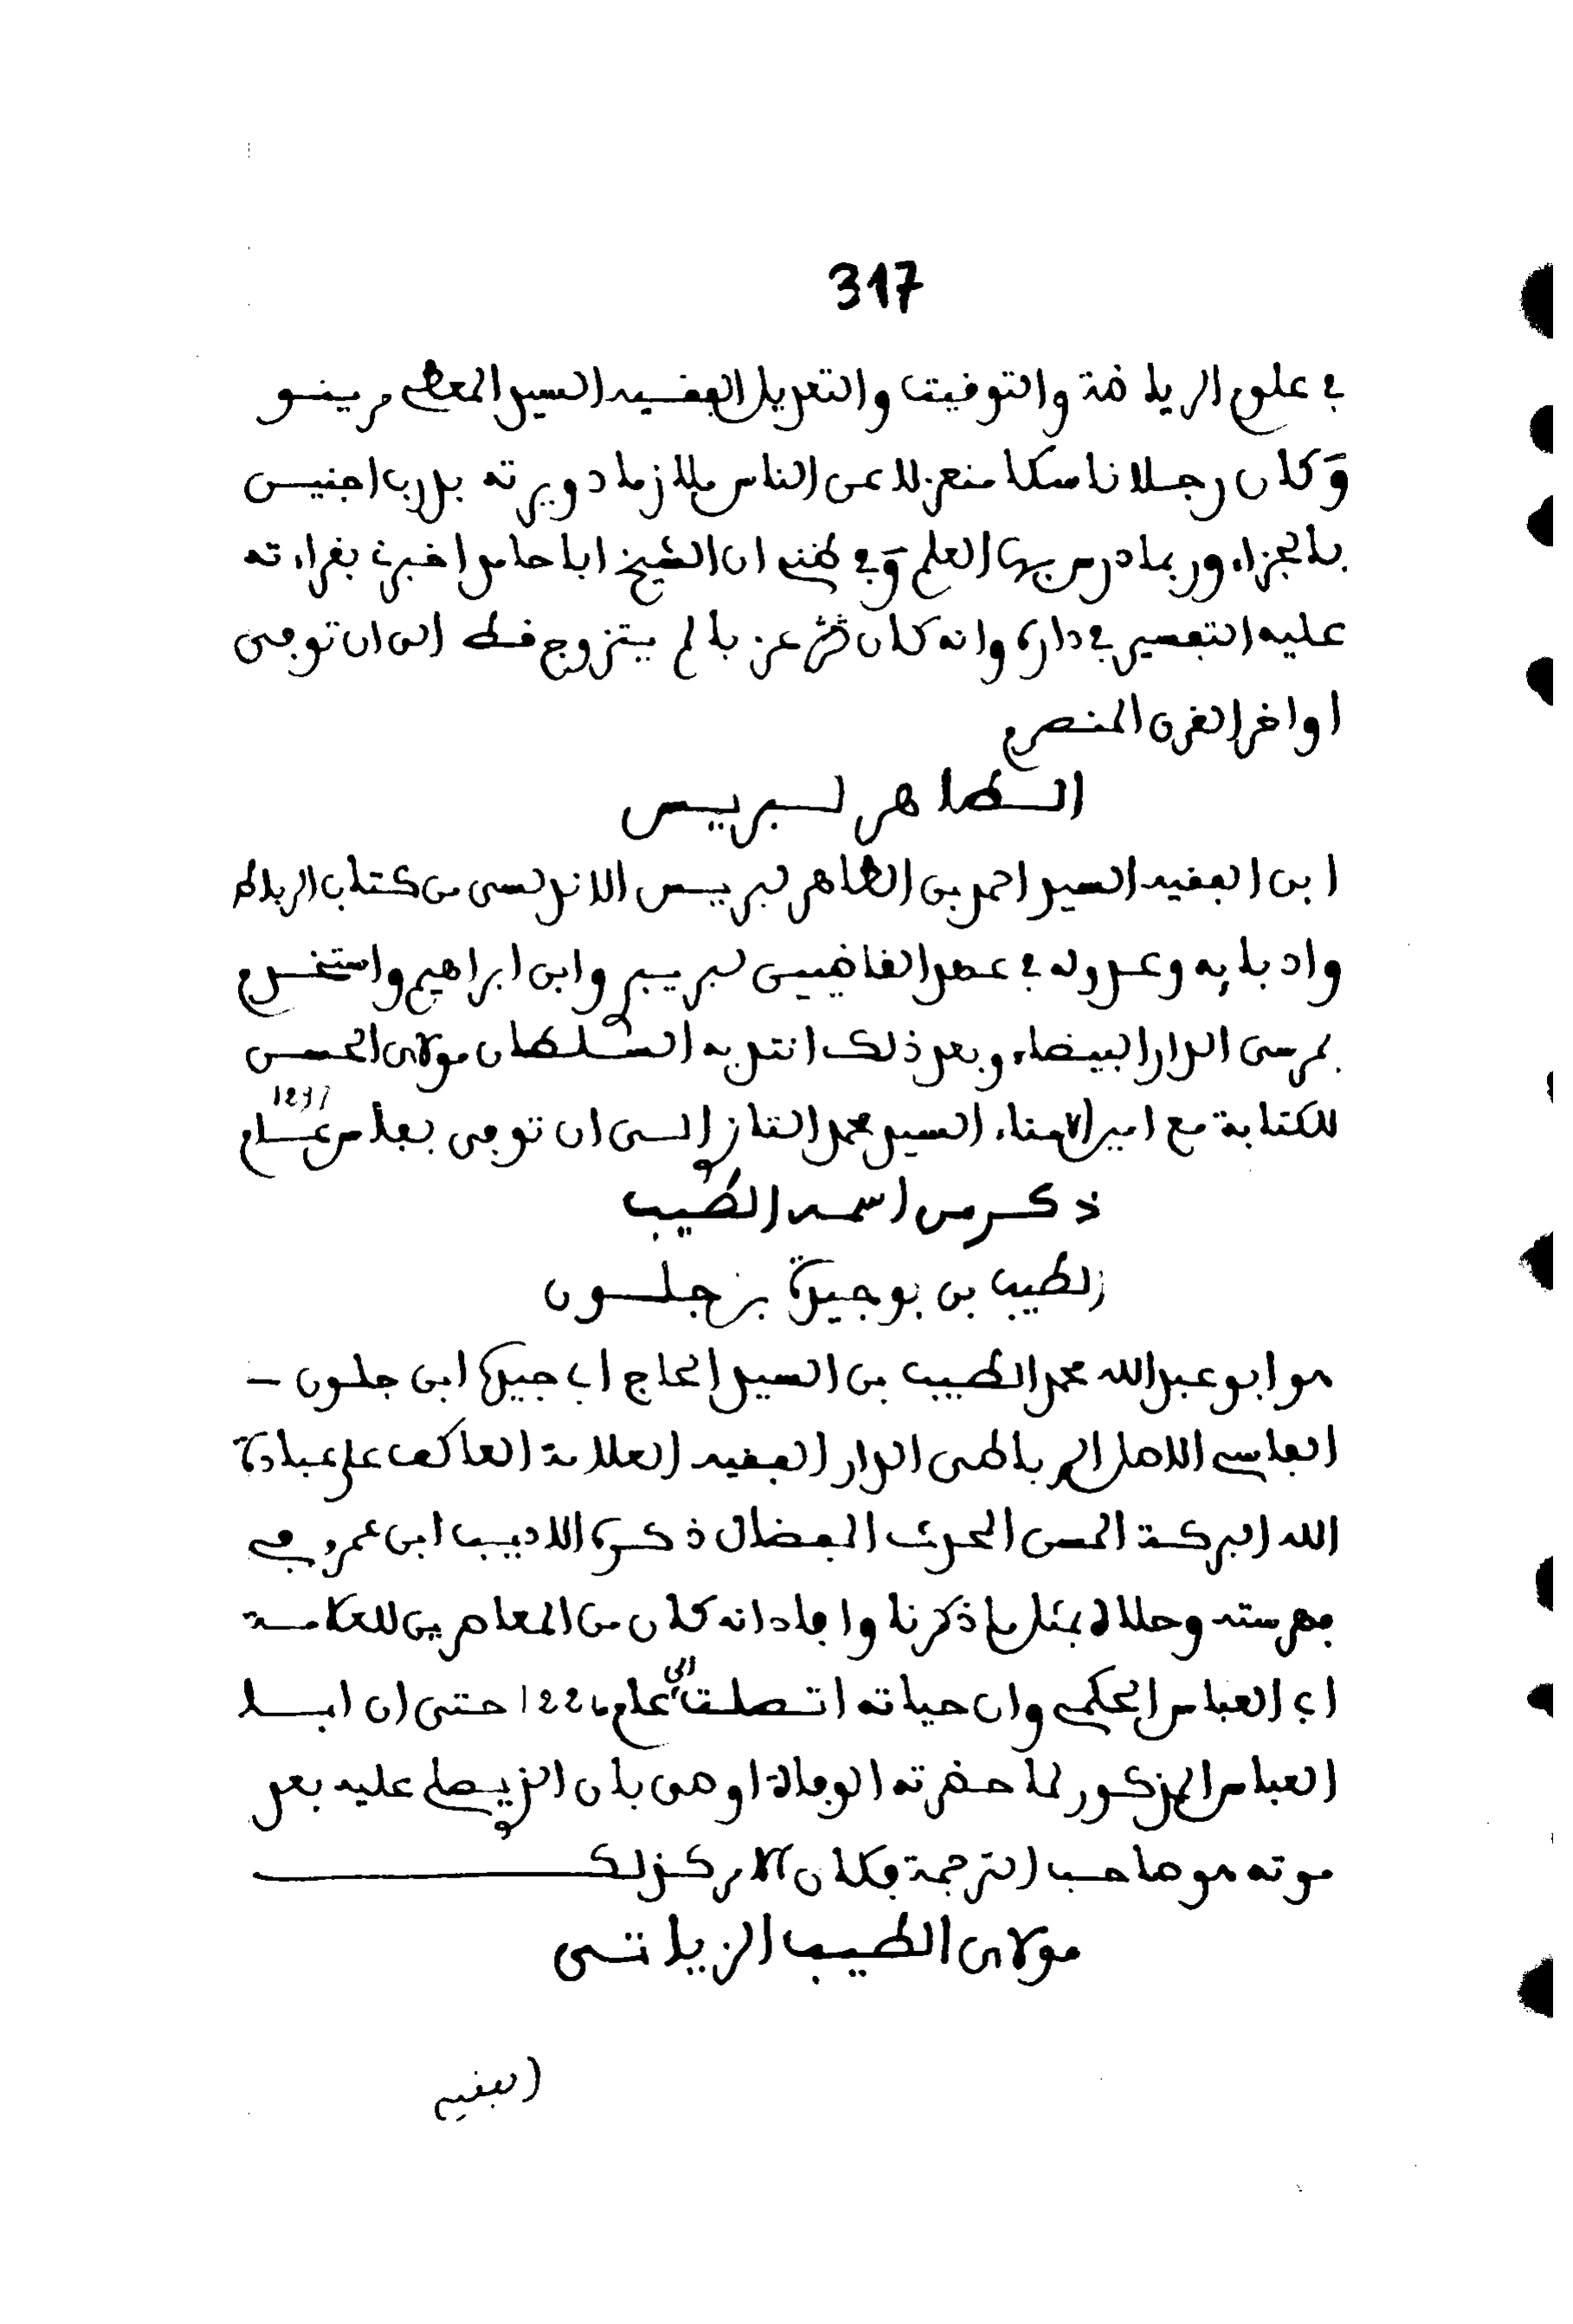 317
في علوم الرياضة والتوفيت والتعديل الفقيه السيد المعطي مرينو
وكان رجلا ناسكا منعزلا عن الناس ملازما دويرته بدرب اجنيس
بالجزاء وربما درس بها العلم وفي ظني ان الشيخ ابا حامد اخبرني بقراءته
عليه التفسير في داره وانه كان عزبا لم يتزوج قط الى ان توفى
اواخر القرن المنصرم
الطاهر لبريس
ابن الفقيه السيد احمد بن الطاهر لبريس الاندلسى من كتاب الرباط
وادبايه وعدوله في عصر القاضيين لبريبر وابن ابراهيم واستخدم
بمرسى الدار البيضاء وبعد ذلك انتدبه السلطان مولاى الحسن
للكتابة مع امير الامناء السيد محمد التازي الى ان توفى بفاس عام 1297
ذكر من اسمه الطيب
الطيب بن بوجيدة بن جلون
هو ابو عبد الله محمد الطيب بن السيد الحاج ابي جيدة ابن جلون –
الفاسي الاصل الرباطى الدار الفقيه العلامة العاكف على عبادة
الله البركة المسن المفضال ذكره الاديب ابن عمرو في
فهرسته وحلاه بمثل ما ذكرنا وافاد انه كان من المعاصرين للعلامة
ابي العباس الحكمي وان حياته اتصلت الى عام 1226 حتى ان ابا
العباس المذكور لما حضرته الوفاة اوصى بان الذي يصلي عليه بعد
موته هو صاحب الترجمة فكان الامر كذلك
مولاى الطيب الزياتى
الفقيه